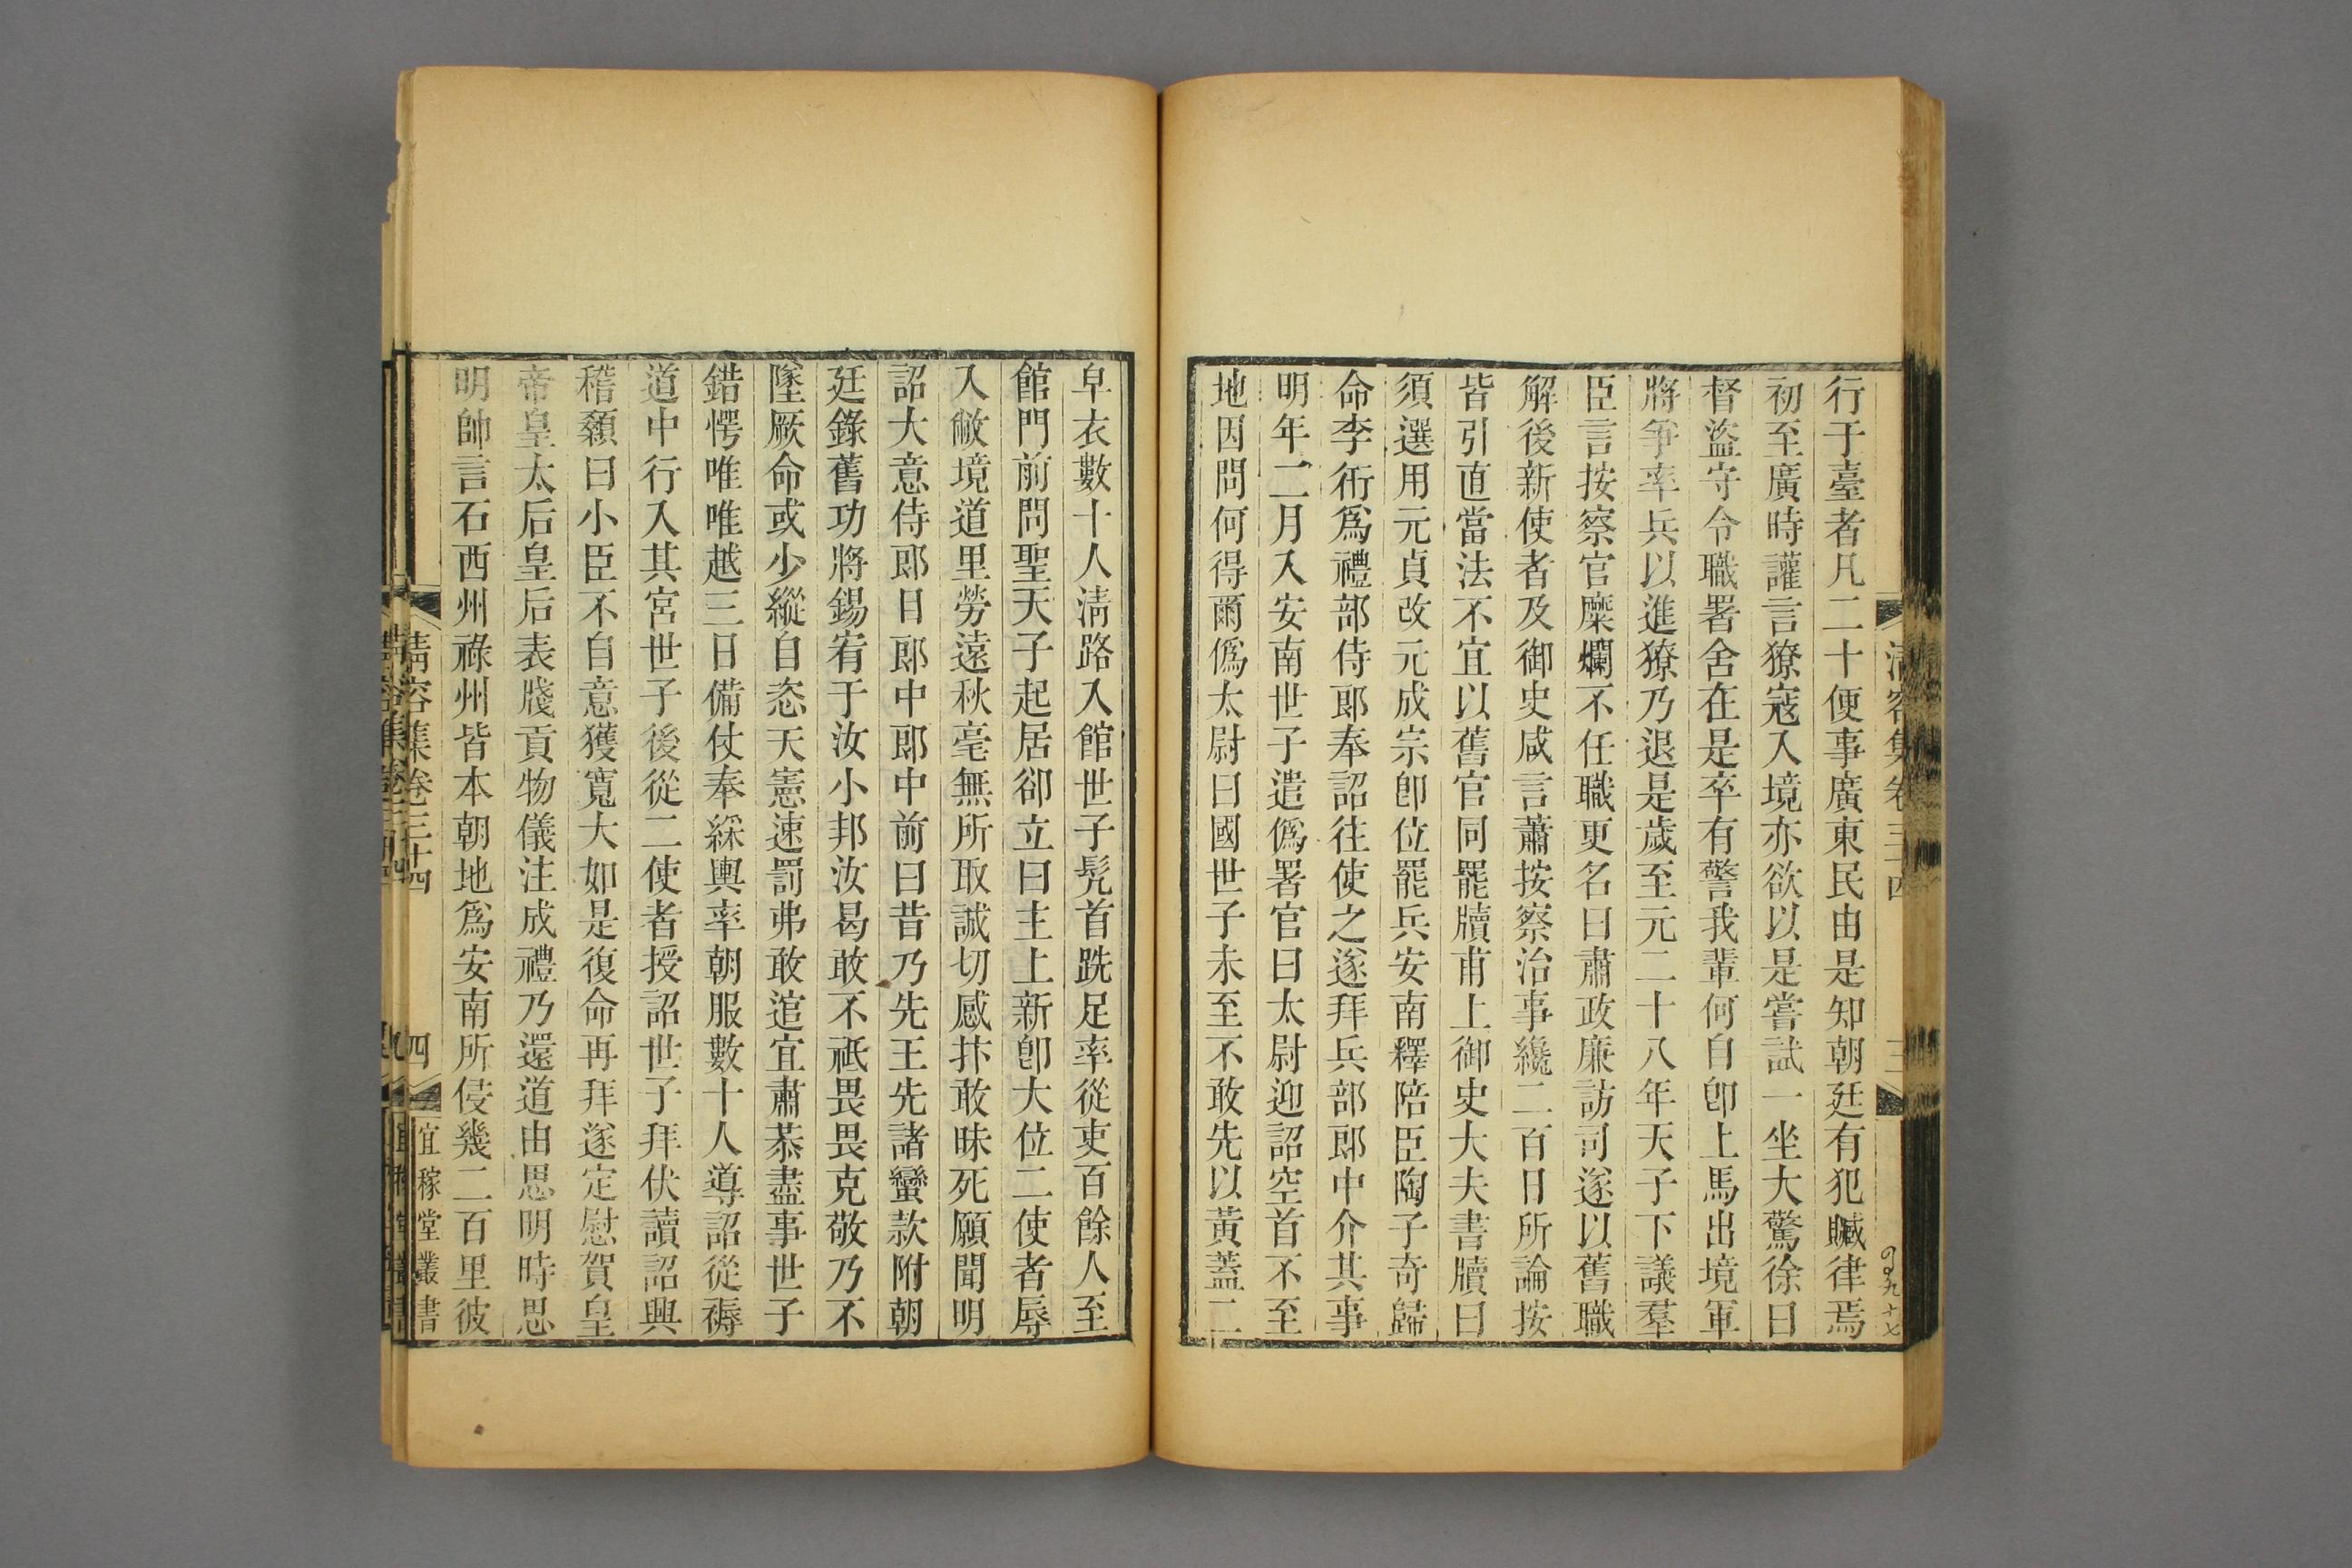 清容集卷三十四
三
行于臺者凡二十便事廣東民由是知朝廷有犯贓律焉
初至廣時讙言獠寇入境亦欲以是嘗試一坐大驚徐曰
督盜守令職署舍在是卒有警我輩何自卽上馬出境軍
將爭率兵以進獠乃退是歲至元二十八年天子下議羣
臣言按察官糜爛不任職更名曰肅政廉訪司遂以舊職
解後新使者及御史咸言蕭按察治事纔二百日所論按
皆引直當法不宜以舊官同罷牘甫上御史大夫書牘曰
須選用元貞改元成宗卽位罷兵安南釋陪臣陶子奇歸
命李衎爲禮部侍郎奉詔往使之遂拜兵部郎中介其事
明年二月入安南世子遣僞署官曰太尉迎詔空首不至
地因問何得爾僞太尉曰國世子未至不敢先以黃蓋二
皁衣數十人淸路入館世子髡首跣足率從吏百餘人至
館門前問聖天子起居卻立曰主上新卽大位二使者辱
入敝境道里勞遠秋毫無所取誠切感抃敢昧死願聞明
詔大意侍郎目郎中郎中前曰昔乃先王先諸蠻款附朝
廷錄舊功將錫宥于汝小邦汝曷敢不祇畏畏克敬乃不
墜厥命或少縱自恣天憲速罰弗敢逭宜肅恭盡事世子
錯愕唯唯越三日備仗奉綵輿率朝服數十人導詔從褥
道中行入其宮世子後從二使者授詔世子拜伏讀詔興
稽顙曰小臣不自意獲寬大如是復命再拜遂定慰賀皇
帝皇太后皇后表牋貢物儀注成禮乃還道由思明時思
明帥言石西州祿州皆本朝地爲安南所侵幾二百里彼
清容集卷三十四
四
宜稼堂叢書